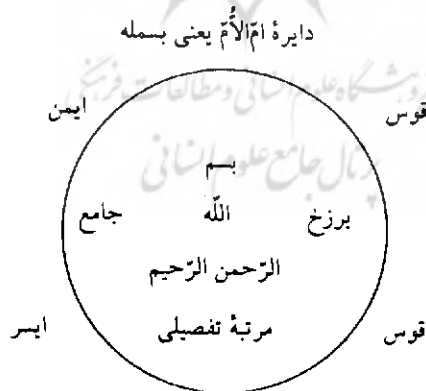 دایرهٔ امّ‌الاُمّ یعنی بسمله
پژوهشگاه علوم انسانی و مطالعات فرهنگی
قوس ایمن
پرتال جامع علوم انسانی
بسم
برزخ اللّه جامع
الرّحمن الرّحیم
مرتبهٔ تفصیلی
قوس ایسر